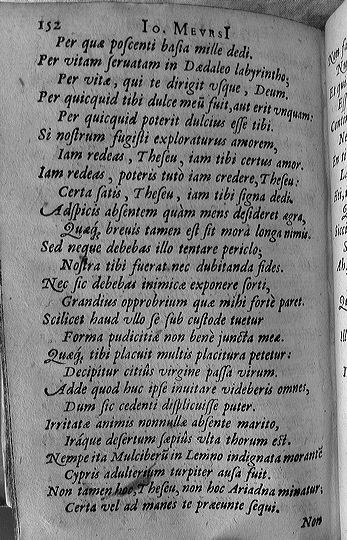 152 Io. MEVRSI
Per quæ poscenti basia mille dedi.
Per vitam seruatam in Dædaleo labyrintho;
Per vitæ, qui te dirigit vsque, Deum.
Per quicquid tibi dulce meũ fuit, aut erit vnquam:
Per quicquid poterit dulcius esse tibi.
Si nostrum fugisti exploraturus amorem,
Iam redeas, Theseu, iam tibi certus amor.
Iam redeas, poteris tuto iam credere, Theseu:
Certa satis, Theseu, iam tibi signa dedi.
Adspicis absentem quàm mens desideret ægra,
Quæq́; breuis tamen est sit mora longa nimis.
Sed neque debebas illo tentare periclo;
Nostra tibi fuerat nec dubitanda fides.
Nec sic debebas inimicæ exponere sorti,
Grandius opprobrium quæ mihi fortè paret.
Scilicet haud vllo se sub custode tuetur
Forma pudicitiæ non benè juncta meæ.
Quæq́; tibi placuit multis placitura petetur:
Decipitur citiùs virgine passa virum.
Adde quod huc ipse inuitare videberis omnes,
Dum sic cedenti displicuisse puter.
Irritatæ animis nonnullæ absente marito,
Iráque desertum sæpiùs vlta thorum est.
Nempe ita Mulciberũ in Lemno indignata morantẽ
Cypris adulterium turpiter ausa fuit.
Non tamen hoc, Theseu, non hoc Ariadna minatur;
Certa vel ad manes te præeunte sequi.
Non